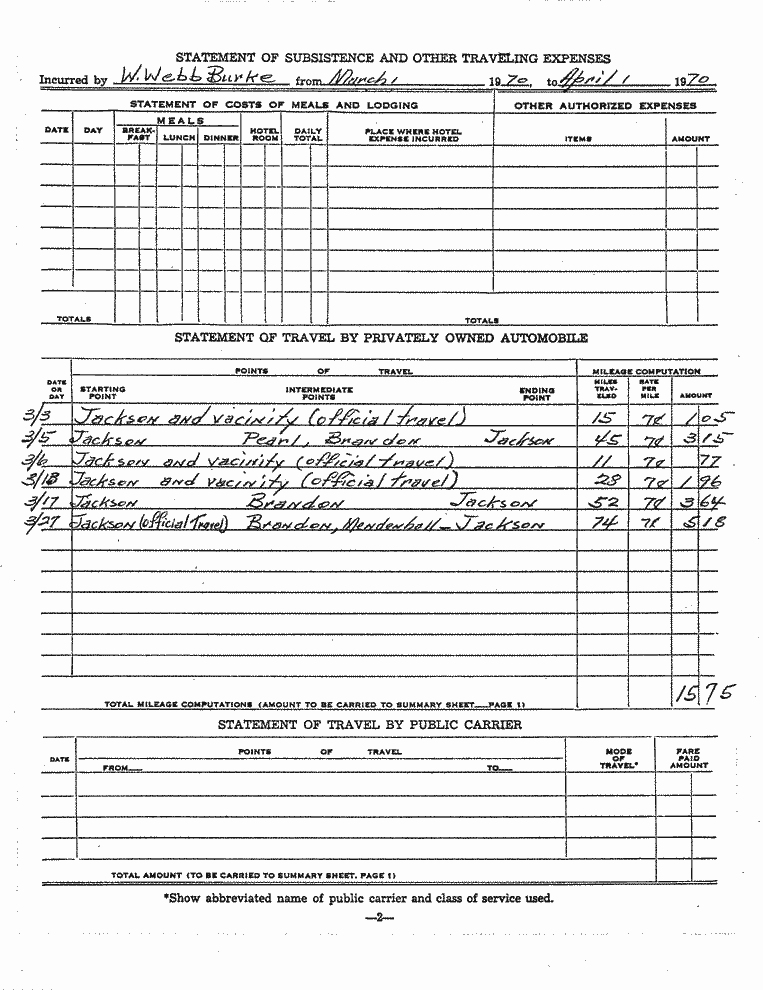 STATEMENT OF SUBSISTENCE AND OTHER TRAVELING EXPENSES
Incurred by W. Webb Burke from March 1 1970, to April 1 1970
STATEMENT OF COSTS OF MEALS AND LODGING OTHER AUTHORIZED EXPENSES
MEALS
DATE DAY BREAK-FAST LUNCH DINNER HOTEL ROOM DAILY TOTAL PLACE WHERE HOTEL EXPENSE INCURRED ITEMS AMOUNT
TOTALS TOTALS
STATEMENT OF TRAVEL BY PRIVATELY OWNED AUTOMOBILE
POINTS OF TRAVEL MILEAGE COMPUTATION
DATE OR DAY STARTING POINT INTERMEDIATE POINTS ENDING POINT MILES TRAV-ELED RATE PER MILE AMOUNT
3/3 Jackson and vacinity (official travel) 15 7¢ 1 05
3/5 Jackson Pearl, Brandon Jackson 45 7¢ 3 15
3/6 Jackson and vacinity (official travel) 11 7¢ 77
3/13 Jackson and vacinity (official travel) 28 7¢ 1 96
3/17 Jackson Brandon Jackson 52 7¢ 3 64
3/27 Jackson (official Travel) Brandon, Mendenhall - Jackson 74 7¢ 5 18
TOTAL MILEAGE COMPUTATIONS (AMOUNT TO BE CARRIED TO SUMMARY SHEET—PAGE 1) 15 75
STATEMENT OF TRAVEL BY PUBLIC CARRIER
DATE POINTS OF TRAVEL MODE OF TRAVEL* FARE PAID AMOUNT
FROM— TO—
TOTAL AMOUNT (TO BE CARRIED TO SUMMARY SHEET. PAGE 1)
*Show abbreviated name of public carrier and class of service used.
—2—